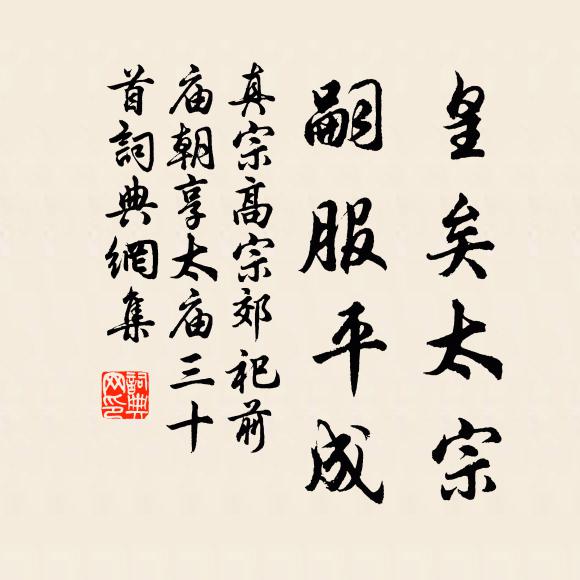 皇矣太宗
嗣服平成
真宗高宗郊祀前
庙朝享太庙三十
首詞典網集
詞典网印